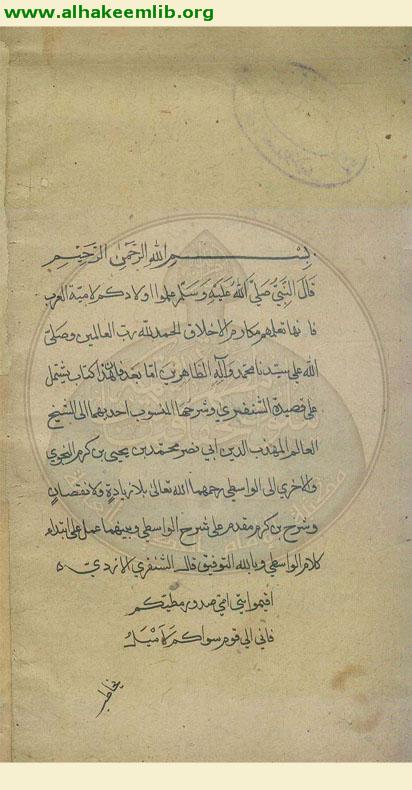 www.alhakeemlib.org
بسم الله الرحمن الرحيم
قال النبي صلى الله عليه وسلم علموا اولادكم لامية العرب
فانها تعلمهم مكارم الاخلاق الحمد لله رب العالمين وصلى
الله على سيدنا محمد وآله الطاهرين اما بعد فان هذا كتاب يشتمل
على قصيدة الشنفري وشرحها المنسوب احديهما الى الشيخ
العالم المهذب الدين ابي نصر محمد بن يحيى بن كرم النحوي
والاخرى الى الواسطي رحمهما الله تعالى بلا زيادة ولا نقصان
وشرح بن كرم مقدم على شرح الواسطي وبينهما عمل على ابتداء
كلام الواسطي وبالله التوفيق قال الشنفري الازدي
اقيموا بني امي صدور مطيكم
فاني الى قوم سواكم لاميل
يخاطب